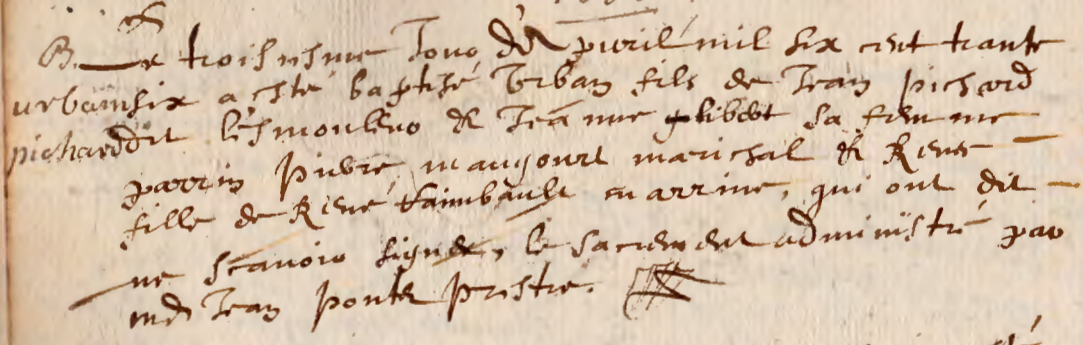 B. Le troisiesme Jour d'apvril mil six cent trante
urbain six a esté baptisé Urban fils de Jean pichard
pichard dit lesmouleur & Jeanne glibert sa femme
parrin pierre maugourt marichal & Renée
fille de René Raimbault marrine, qui ont dit
ne scavoir signer, le sacrement administré par
md Jean ponte prestre.